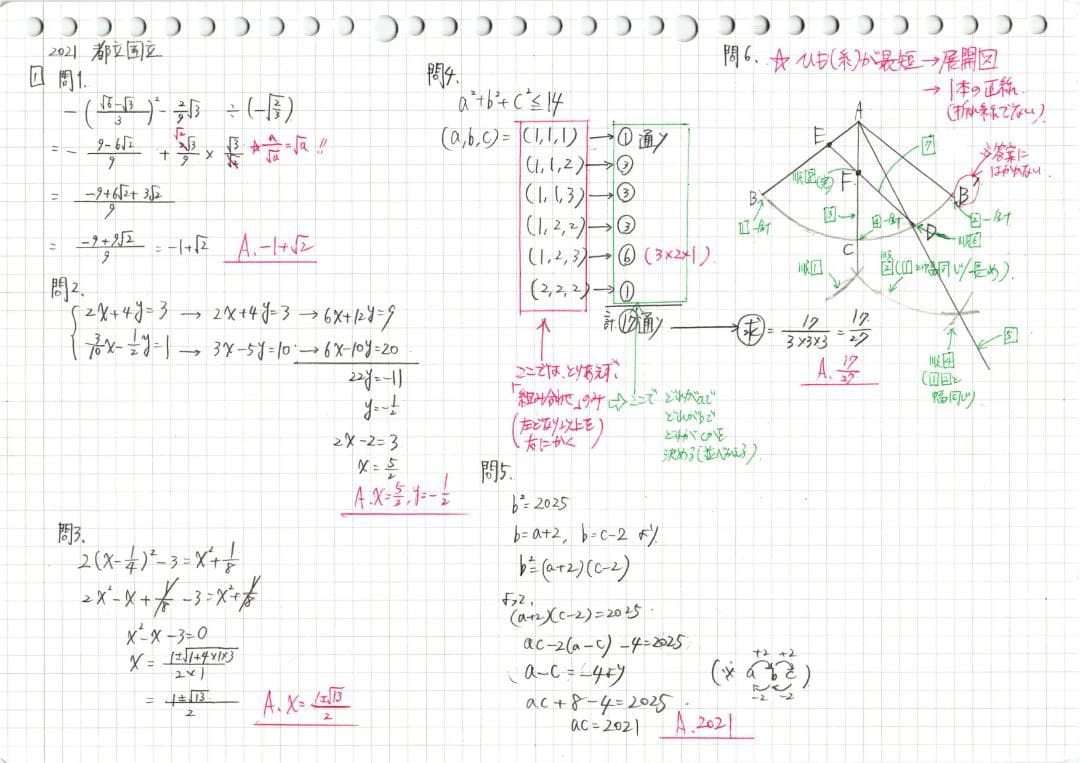 2021 都立国立
1 問1.
-((√6-√3)/3)² - 2/9√3 ÷(-√(2/3))
= -(9-6√2)/9 + (2√3)/9 × √3/√2 ☆ a/√a=√a !!
= (-9+6√2+3√2)/9
= (-9+9√2)/9 = -1+√2 A. -1+√2
問2.
2x+4y=3 → 2x+4y=3 → 6x+12y=9
3/10x-1/2y=1 → 3x-5y=10 → 6x-10y=20
22y=-11
y=-1/2
2x-2=3
x=5/2
A. x=5/2, y=-1/2
問3.
2(x-1/4)²-3=x²+1/8
2x²-x+1/8-3=x²+1/8
x²-x-3=0
x=(1±√(1+4×1×3))/(2×1)
=(1±√13)/2 A. x=(1±√13)/2
問4.
a²+b²+c²≦14
(a,b,c)= (1,1,1) → ①通り
(1,1,2) → ③
(1,1,3) → ③
(1,2,2) → ③
(1,2,3) → ⑥ (3×2×1)
(2,2,2) → ①
計⑰通り → 求 = 17/(3×3×3) = 17/27
A. 17/27
ここでは、とりあえず、
「組み合わせ」のみ
(左と同じ以上を
右にかく)
⇨ ここで どれがaで
どれがbで
どれがcかを
決める(並べかえる)
問5.
b²=2025
b=a+2, b=c-2 より
b²=(a+2)(c-2)
よって,
(a+2)(c-2)=2025
ac-2(a-c)-4=2025
a-c=-4より
ac+8-4=2025
ac=2021 A. 2021
(※ a b c)
+2 +2
-2 -2
問6. ☆ ひも(糸)が最短→展開図
→ 1本の直線
(折れ線でない)
A
E
7
※答案に
はかかない
F
B
B'
3
D
C
順1
2(1と幅同じ/長め)
5
順4
(1回と
幅同じ)